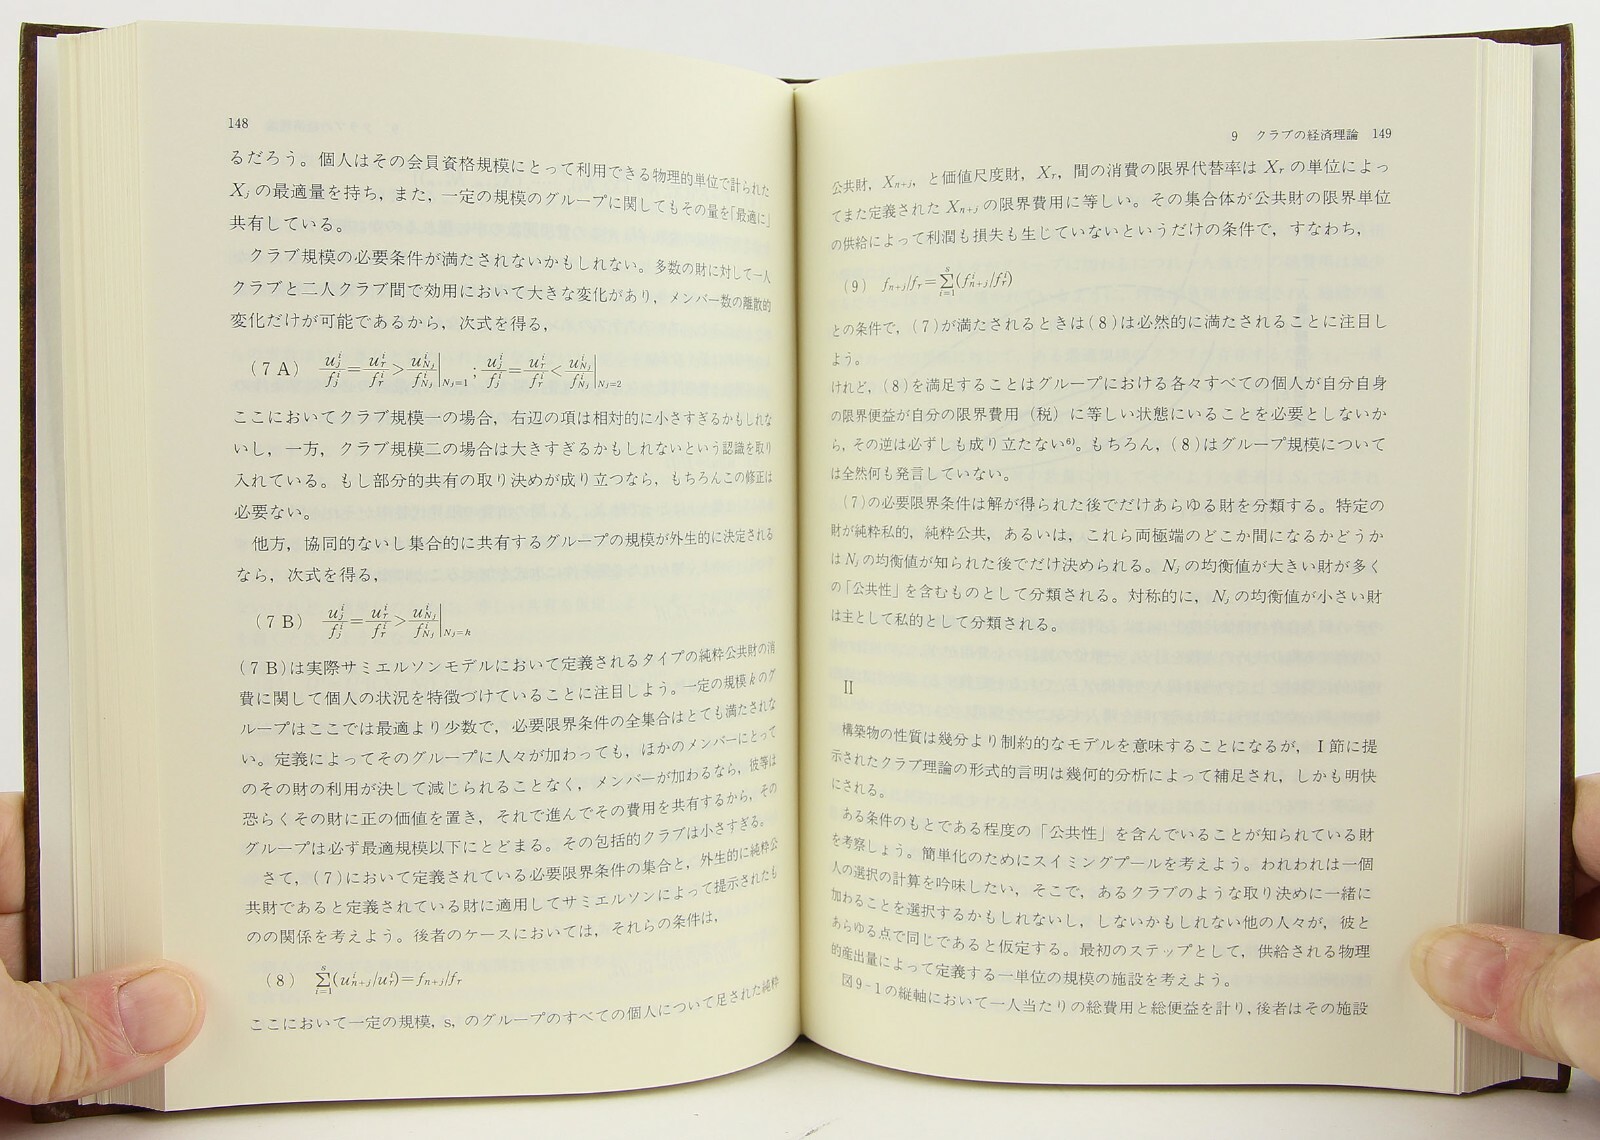 148
るだろう。個人はその会員資格規模にとって利用できる物理的単位で計られた
Xj の最適量を持ち，また，一定の規模のグループに関してもその量を「最適に」
共有している。
クラブ規模の必要条件が満たされないかもしれない。多数の財に対して一人
クラブと二人クラブ間で効用において大きな変化があり，メンバー数の離散的
変化だけが可能であるから，次式を得る，
(7 A) u_j^i/f_j^i = u_r^i/f_r^i > u_{Nj}^i/f_{Nj}^i |_{Nj=1} ; u_j^i/f_j^i = u_r^i/f_r^i < u_{Nj}^i/f_{Nj}^i |_{Nj=2}
ここにおいてクラブ規模一の場合，右辺の項は相対的に小さすぎるかもしれな
いし，一方，クラブ規模二の場合は大きすぎるかもしれないという認識を取り
入れている。もし部分的共有の取り決めが成り立つなら，もちろんこの修正は
必要ない。
他方，協同的ないし集合的に共有するグループの規模が外生的に決定される
なら，次式を得る，
(7 B) u_j^i/f_j^i = u_r^i/f_r^i > u_{Nj}^i/f_{Nj}^i |_{Nj=k}
(7 B)は実際サミエルソンモデルにおいて定義されるタイプの純粋公共財の消
費に関して個人の状況を特徴づけていることに注目しよう。一定の規模 k のグ
ループはここでは最適より少数で，必要限界条件の全集合はとても満たされな
い。定義によってそのグループに人々が加わっても，ほかのメンバーにとって
のその財の利用が決して減じられることなく，メンバーが加わるなら，彼等は
恐らくその財に正の価値を置き，それで進んでその費用を共有するから，その
グループは必ず最適規模以下にとどまる。その包括的クラブは小さすぎる。
さて，(7)において定義されている必要限界条件の集合と，外生的に純粋公
共財であると定義されている財に適用してサミエルソンによって提示されたも
のの関係を考えよう。後者のケースにおいては，それらの条件は，
(8) Σ_{i=1}^{s}(u_{n+j}^i/u_r^i)=f_{n+j}/f_r
ここにおいて一定の規模, s, のグループのすべての個人について足された純粋
9 クラブの経済理論 149
公共財，X_{n+j}，と価値尺度財，Xr，間の消費の限界代替率は Xr の単位によっ
てまた定義された X_{n+j} の限界費用に等しい。その集合体が公共財の限界単位
の供給によって利潤も損失も生じていないというだけの条件で，すなわち，
(9) f_{n+j}/f_r=Σ_{i=1}^{s}(f_{n+j}^i/f_r^i)
との条件で，(7)が満たされるときは(8)は必然的に満たされることに注目し
よう。
けれど，(8)を満足することはグループにおける各々すべての個人が自分自身
の限界便益が自分の限界費用（税）に等しい状態にいることを必要としないか
ら，その逆は必ずしも成り立たない6)。もちろん，(8)はグループ規模について
は全然何も発言していない。
(7)の必要限界条件は解が得られた後でだけあらゆる財を分類する。特定の
財が純粋私的，純粋公共，あるいは，これら両極端のどこか間になるかどうか
は Nj の均衡値が知られた後でだけ決められる。Nj の均衡値が大きい財が多く
の「公共性」を含むものとして分類される。対称的に，Nj の均衡値が小さい財
は主として私的として分類される。
II
構築物の性質は幾分より制約的なモデルを意味することになるが，I 節に提
示されたクラブ理論の形式的言明は幾何的分析によって補足され，しかも明快
にされる。
ある条件のもとである程度の「公共性」を含んでいることが知られている財
を考察しょう。簡単化のためにスイミングプールを考えよう。われわれは一個
人の選択の計算を吟味したい，そこで，あるクラブのような取り決めに一緒に
加わることを選択するかもしれないし，しないかもしれない他の人々が，彼と
あらゆる点で同じであると仮定する。最初のステップとして，供給される物理
的産出量によって定義する一単位の規模の施設を考えよう。
図9-1の縦軸において一人当たりの総費用と総便益を計り，後者はその施設